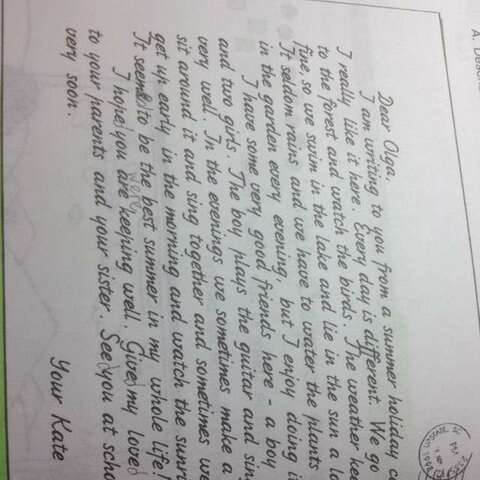 Dear Olga,
I am writing to you from a summer holiday
I really like it here. Every day is different. We go
to the forest and watch the birds. The weather kee
fine, so we swim in the lake and lie in the sun a lo
It seldom rains and we have to water the plants
in the garden every evening, but I enjoy doing i
I have some very good friends here - a boy
and two girls. The boy plays the guitar and sing
very well. In the evenings we sometimes make a
sit around it and sing together and sometimes we
get up early in the morning and watch the sunri
It seems to be the best summer in my whole life!
were
I hope you are keeping well. Give my love
to your parents and your sister. See you at scho
very soon.
Your Kate
A.